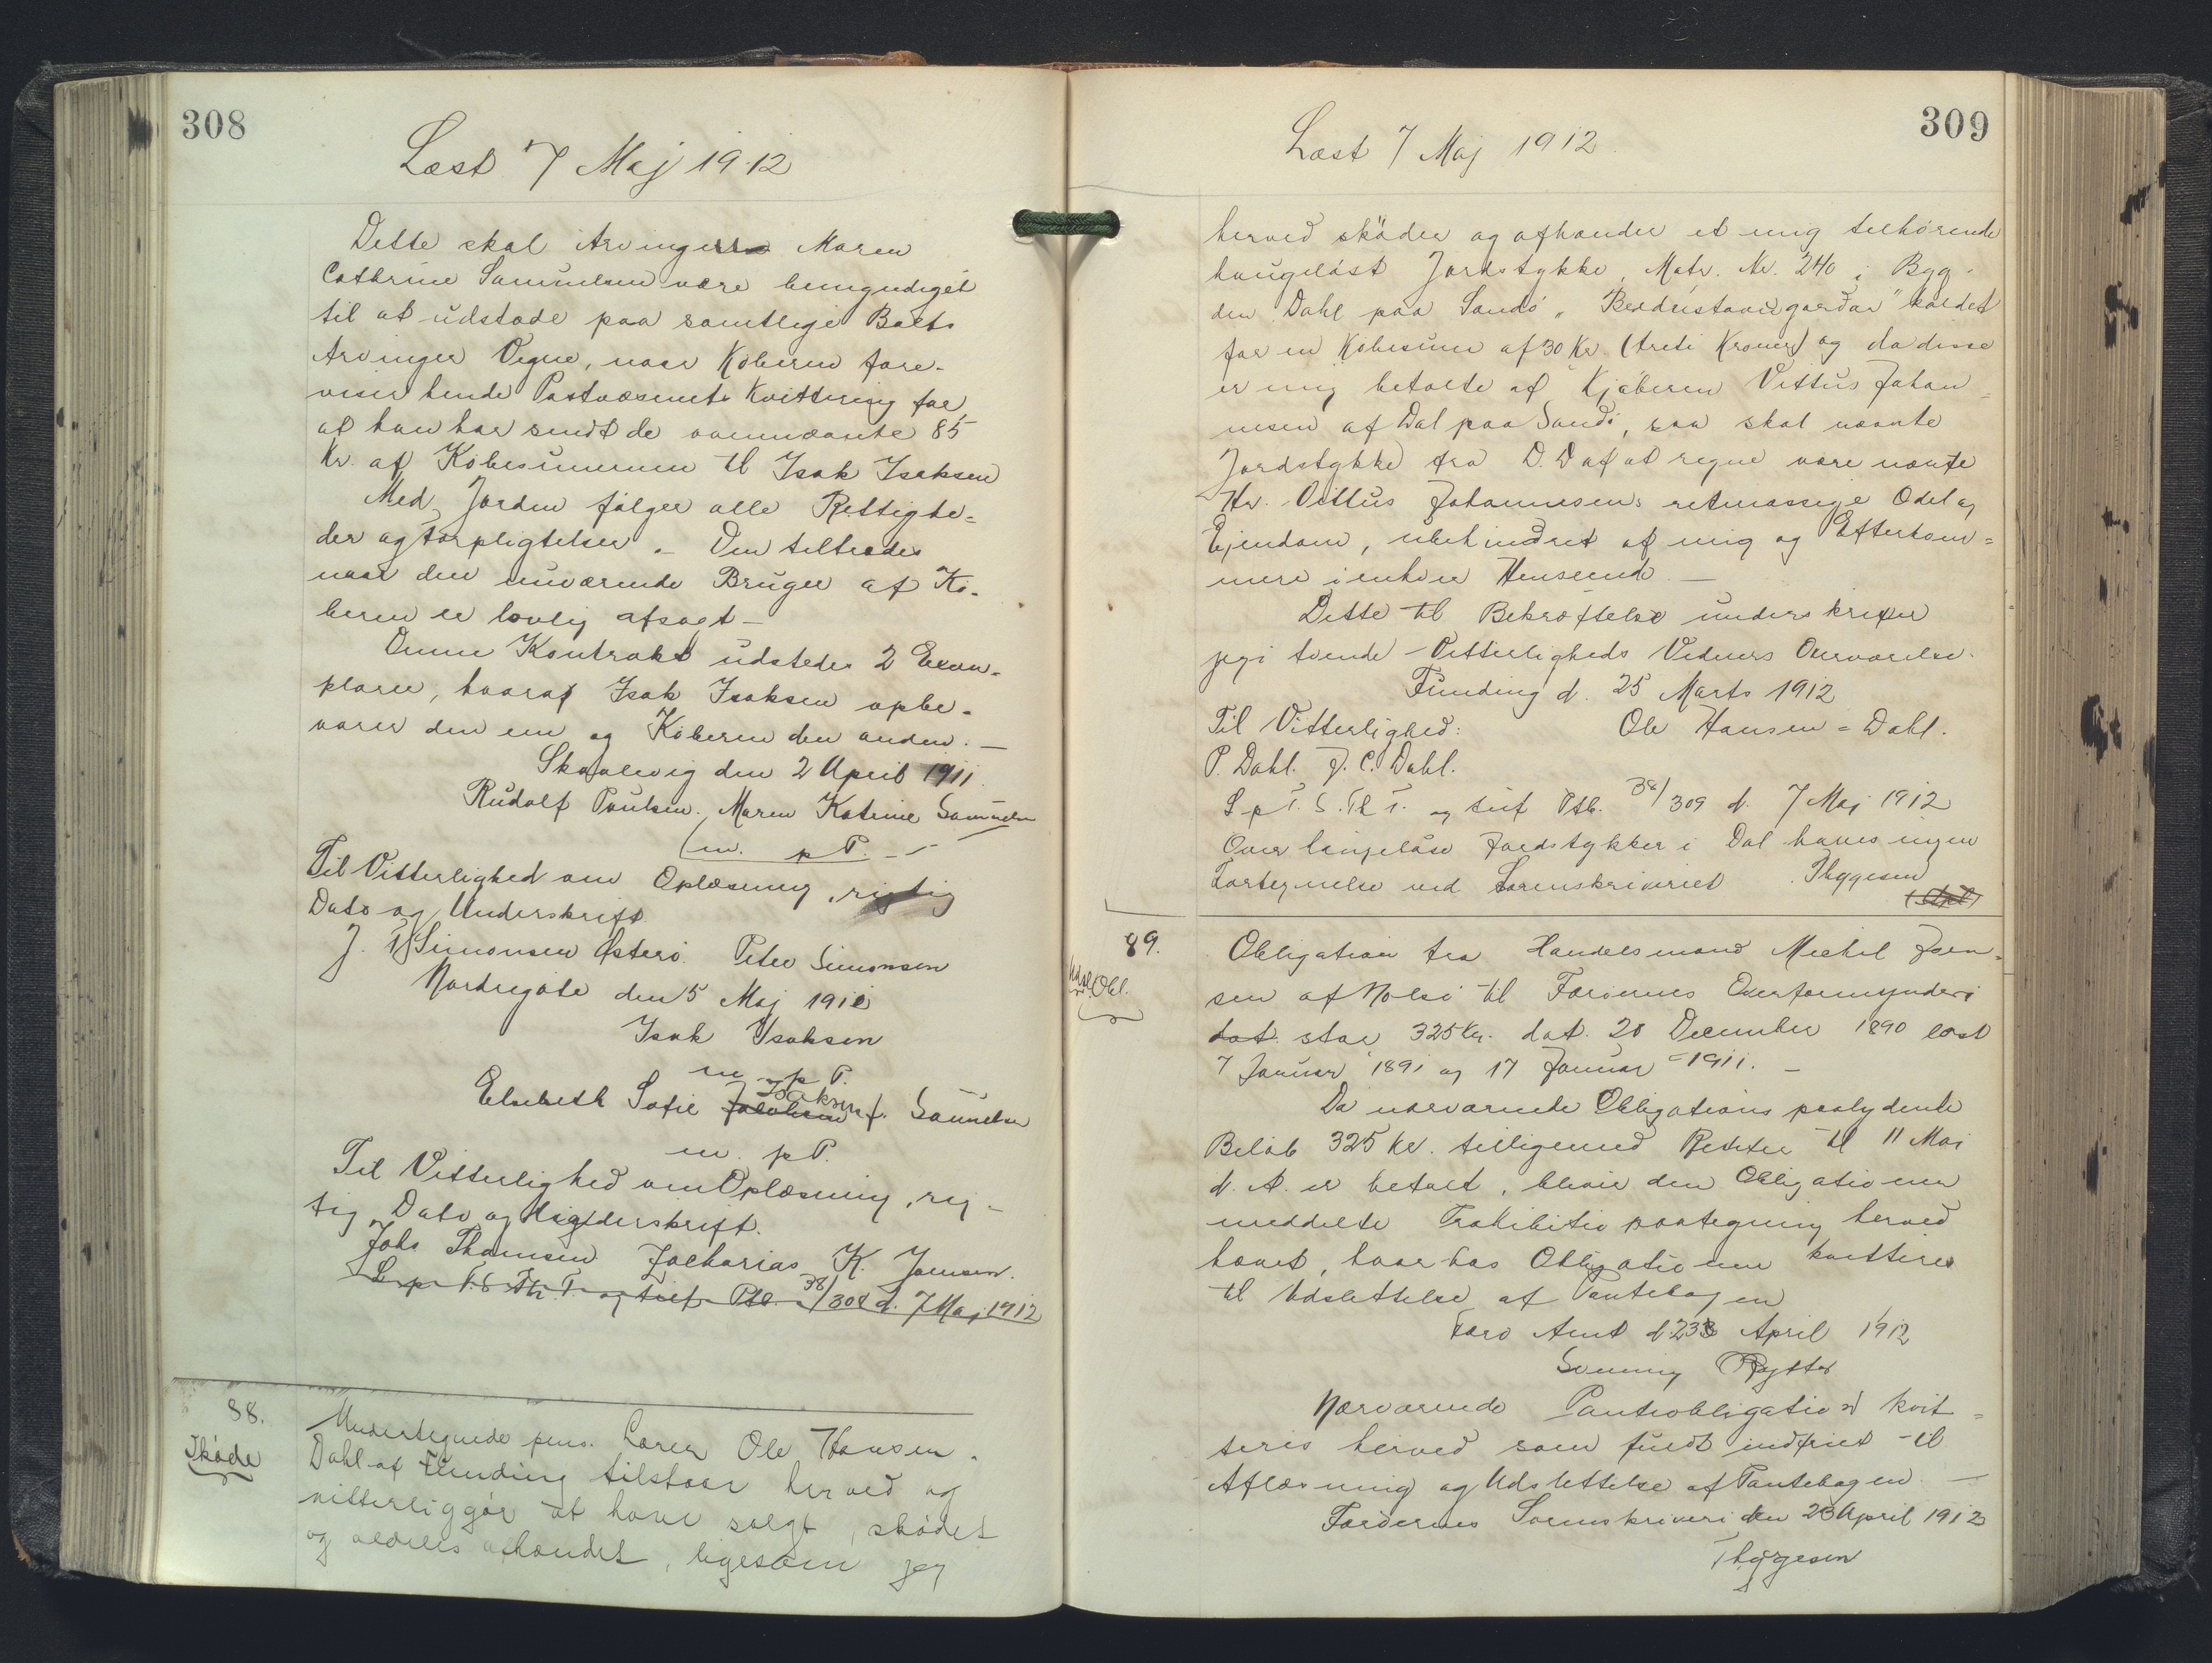 308
Læst 7 Maj 1912
Dette skal Arvingerne Maren
Cathrine Samuelsen være bemyndiget
til at udstede paa samtlige Boets
Arvinger Vegne, naar Køberen fore-
viser hende Postvæsenets Kvittering for
at han har sendt de ovennævnte 85
Kr. af Købesummen til Isak Isaksen
Med Jorden følger alle Rettighe=
der og Forpligtelser. - Den tiltrædes
naar den nuværende Bruger af Kø-
beren er lovlig afsagt -
Denne Kontrakt udstedes 2 Exem-
plarer, hvoraf Isak Isaksen opbe-
varer den ene og Køberen den anden. -
Skaalevig den 2 April 1911.
Rudolf Poulsen. Maren Katrine Samuelsen
m. p P.
Til Vitterlighed om Oplæsning, rigtig
Dato og Underskrift.
J. Simonsen Østerø. Peter Simonsen
Nordregøte den 5 Maj 1911
Isak Isaksen
m. p P.
Isaksen
Elsebeth Sofie Jakobsen f. Samuelsen
m. p P.
Til Vitterlighed om Oplæsning, rig-
tig Dato og Underskrift.
Johs Thomsen Zacharias K. Joensen.
L. p. T. S. Th. T. og tilf. Ptb. 38/308 d. 7 Maj 1912
88.
Skøde
Undertegnede pens. Lærer Ole Hansen-
Dahl af Funding tilstaar herved og
vitterliggør at have solgt, skødet
og aldeles afhændet, ligesom jeg
309
Læst 7 Maj 1912.
herved skøder og afhænder et mig tilhørende
haugeløst Jordstykke, Matr. Nr. 240 i Byg-
den Dahl paa Sandø " kaldet
for en Købesum af 30 Kr. (treti Kroner) og da disse
er mig betalte af Kjøberen Vittus Johan=
nesen af Dal paa Sandø, saa skal nævnte
Jordstykke fra D. D af at regne være nævnte
Hr. Vittus Johannesens retmæssige Odel og
Ejendom, ubehindret af mig og Efterkom=
mere i enhver Henseende -
Dette til Bekræftelse underskriver
jeg i tvende Vitterligheds Vidners Overværelse.
Funding d. 25 Marts 1912
Til Vitterlighed: Ole Hansen=Dahl.
P. Dahl. J. C. Dahl.
L p T. S. Th T. og tilf Ptb. 38/309 d. 7 Maj 1912
Over løse Jordstykker i Dal haves ingen
Fortegnelse ved Sorenskriveriet Thygesen
89.
Udsl. Obl.
Obligation fra Handelsmand Michel Joen-
sen af Nolsø til Færøernes Overformynderi
dat. stor 325 Kr. dat. 20 December 1890 læst
7 Januar 1891 og 17 Januar 1911. -
Da nærværende Obligations paalydende
Beløb 325 Kr. tilligemed Renter til 11 Maj
d. A. er betalt, bliver den Obligationen
meddelte Prohibitiv paategning herved
hævet, hvorhos Obligationen kvitteres
til Udslettelse af Pantebogen
Færø Amt d. 23 April 1912
Svenning Rytter
Nærværende Panteobligation kvit=
teres herved som fuldt indfriet til
Aflæsning og Udslettelse af Pantebogen. -
Færøernes Sorenskriveri den 23 April 1912
Thygesen